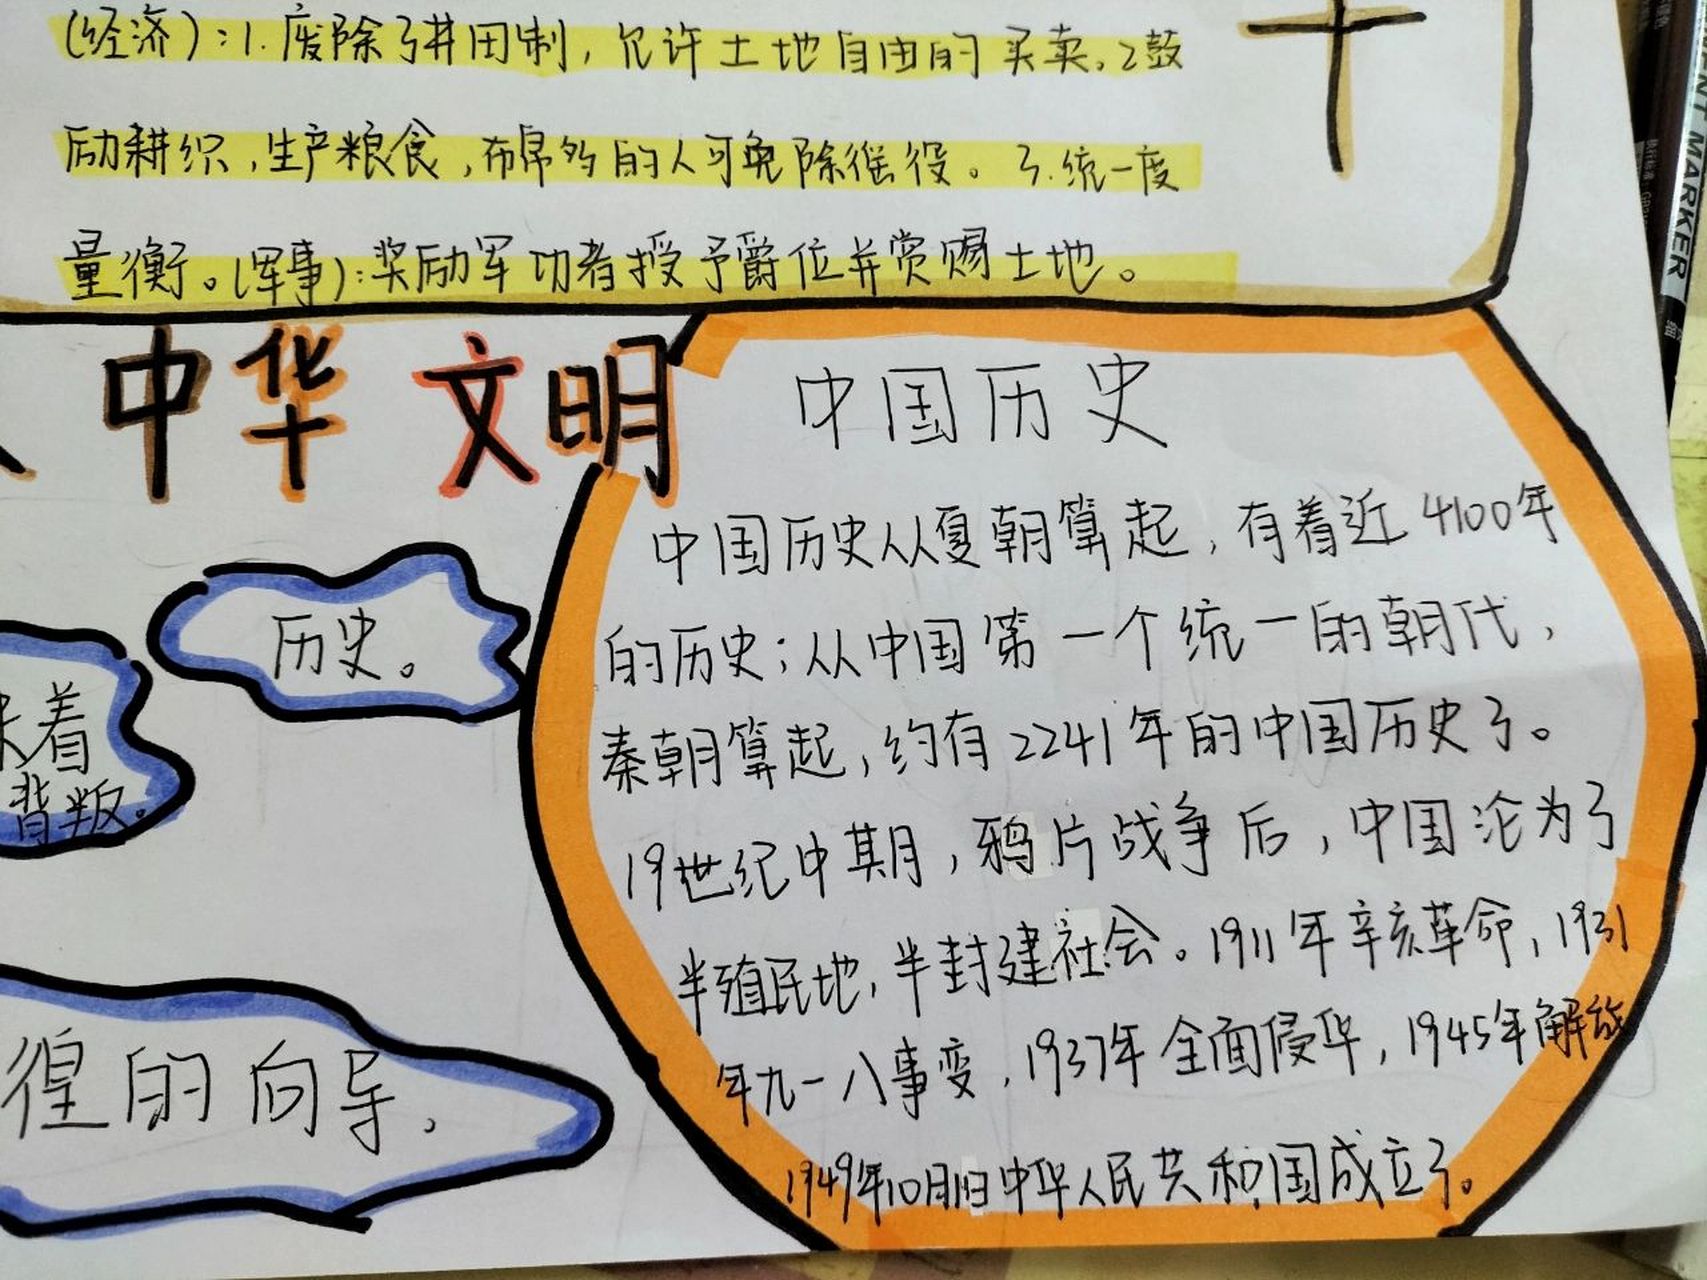 (经济):1.废除了井田制,允许土地自由的买卖。2鼓
励耕织,生产粮食,布帛多的人可免除徭役。3.统一度
量衡。(军事):奖励军功者授予爵位并赏赐土地。
中华文明
中国历史
中国历史从夏朝算起,有着近4100年
的历史;从中国第一个统一的朝代,
秦朝算起,约有2241年的中国历史了。
19世纪中期,鸦片战争后,中国沦为了
半殖民地,半封建社会。1911年辛亥革命,1931
年九一八事变,1937年全面侵华,1945年解放
1949年10月1日中华人民共和国成立了。
历史。
着
背叛。
徨的向导,
MARKER